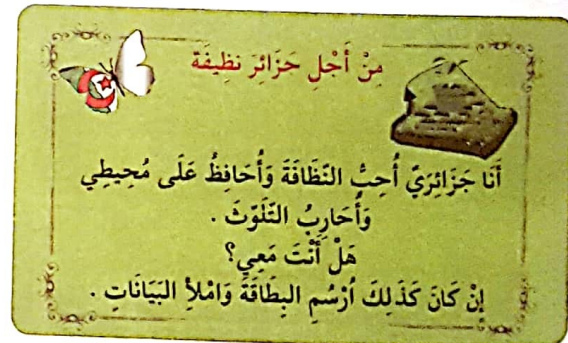 مِنْ أَجْلِ جَزَائِرَ نَظِيفَة
أَنَا جَزَائِرَيٌّ أُحِبُّ النَّظَافَةَ وَأُحَافِظُ عَلَى مُحِيطِي
وَأُحَارِبُ التَّلَوُّثَ .
هَلْ أَنْتَ مَعِي؟
إِنْ كَانَ كَذَلِكَ اُرْسُمِ البِطَاقَةَ وَامْلَأِ البَيَانَاتِ .